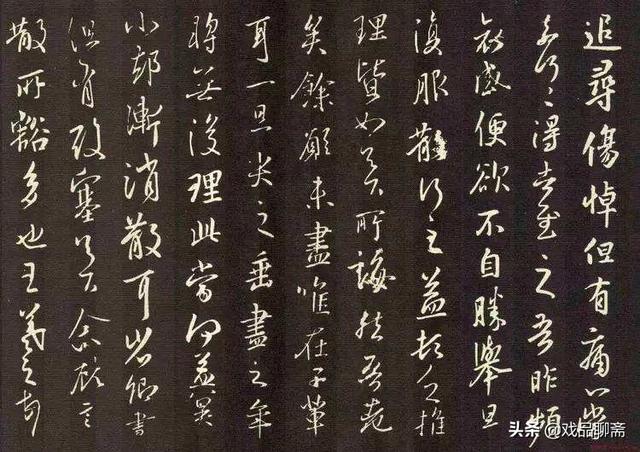 追尋傷悼但有痛心當
奈何〻得告慰之吾昨頻
哀感便欲不自勝舉旦
復服散行之益頓乏推
理皆如足下所誨然吾老
矣餘願未盡惟在子輩
耳一旦哭之垂盡之年
將無復理此當何益冥
小卻漸消散耳省卿書
但有酸塞足下念言
散所豁多也王羲之頓首
头条@戏品聊斋